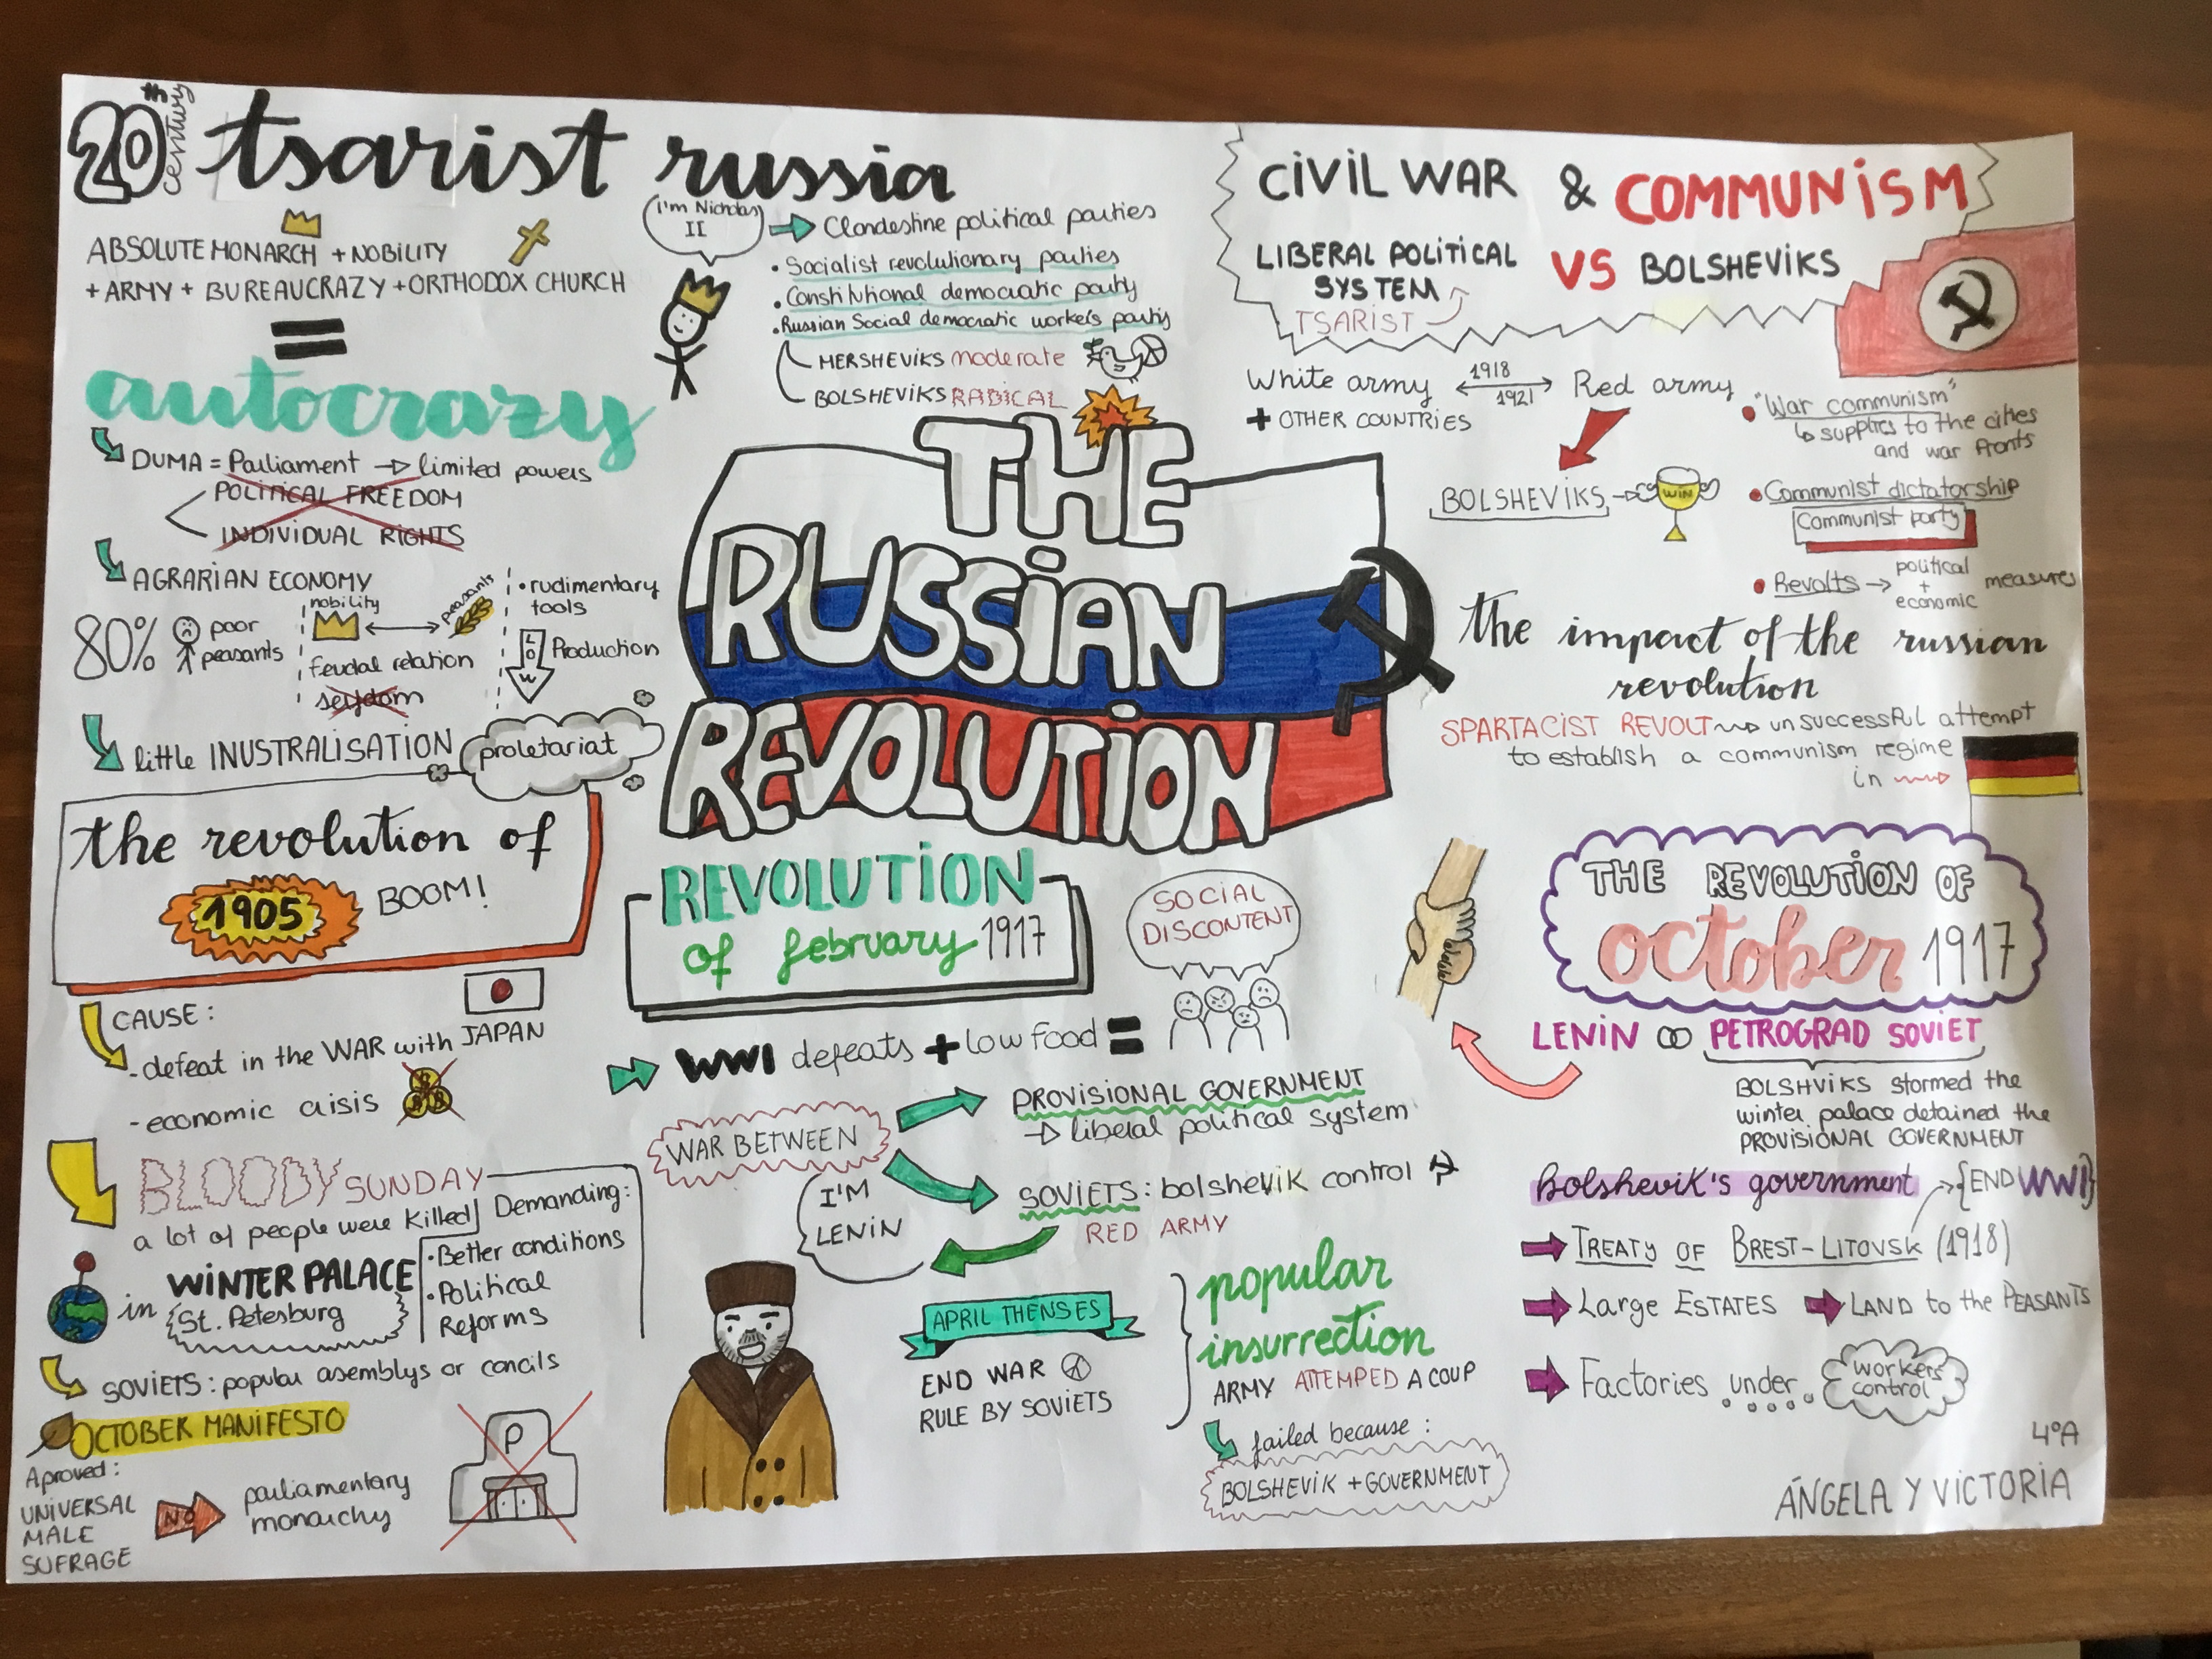 20th century
tsarist russia
ABSOLUTE MONARCH + NOBILITY
+ ARMY + BUREAUCRAZY + ORTHODOX CHURCH
=
autocrazy
DUMA = Parliament → limited powers
POLITICAL FREEDOM
INDIVIDUAL RIGHTS
AGRARIAN ECONOMY
80% poor
peasants
nobility
peasants
feudal relation
serfdom
• rudimentary
tools
LOW
Production
little INUSTRALISATION
proletariat
I'm Nicholas
II
Clandestine political parties
• Socialist revolutionary parties
• Constitutional democratic party
• Russian Social democratic workers party
MERSHEVIKS moderate
BOLSHEVIKS RADICAL
THE
RUSSIAN
REVOLUTION
the revolution of
1905 BOOM!
CAUSE:
- defeat in the WAR with JAPAN
- economic crisis
BLOODY SUNDAY
a lot of people were killed
in WINTER PALACE
St. Petesburg
Demanding:
• Better conditions
• Political
Reforms
SOVIETS: popular asemblys or concils
OCTOBER MANIFESTO
Aproved:
UNIVERSAL
MALE
SUFRAGE
NO
parliamentary
monarchy
P
REVOLUTION
of february 1917
WWI defeats + low food =
SOCIAL
DISCONTENT
WAR BETWEEN
PROVISIONAL GOVERNMENT
→ liberal political system
SOVIETS: bolshevik control
RED ARMY
I'M
LENIN
APRIL THENSES
END WAR
RULE BY SOVIETS
popular
insurrection
ARMY ATTEMPED A COUP
failed because:
BOLSHEVIK + GOVERNMENT
CIVIL WAR & COMMUNISM
LIBERAL POLITICAL
SYSTEM
TSARIST
VS BOLSHEVIKS
White army
+ OTHER COUNTRIES
1918
1921
Red army
BOLSHEVIKS → WIN
• "War communism"
↳ supplies to the cities
and war fronts
• Communist dictatorship
Communist party
• Revolts → political
+
economic
measures
the impact of the russian
revolution
SPARTACIST REVOLT unsuccessful attempt
to establish a communism regime
in
THE REVOLUTION OF
october 1917
LENIN PETROGRAD SOVIET
BOLSHVIKS stormed the
winter palace detained the
PROVISIONAL GOVERNMENT
Bolshevik's government
{END WWI}
TREATY OF BREST-LITOVSK (1918)
Large ESTATES LAND to the PEASANTS
Factories under workers'
control
4ºA
ÁNGELA Y VICTORIA